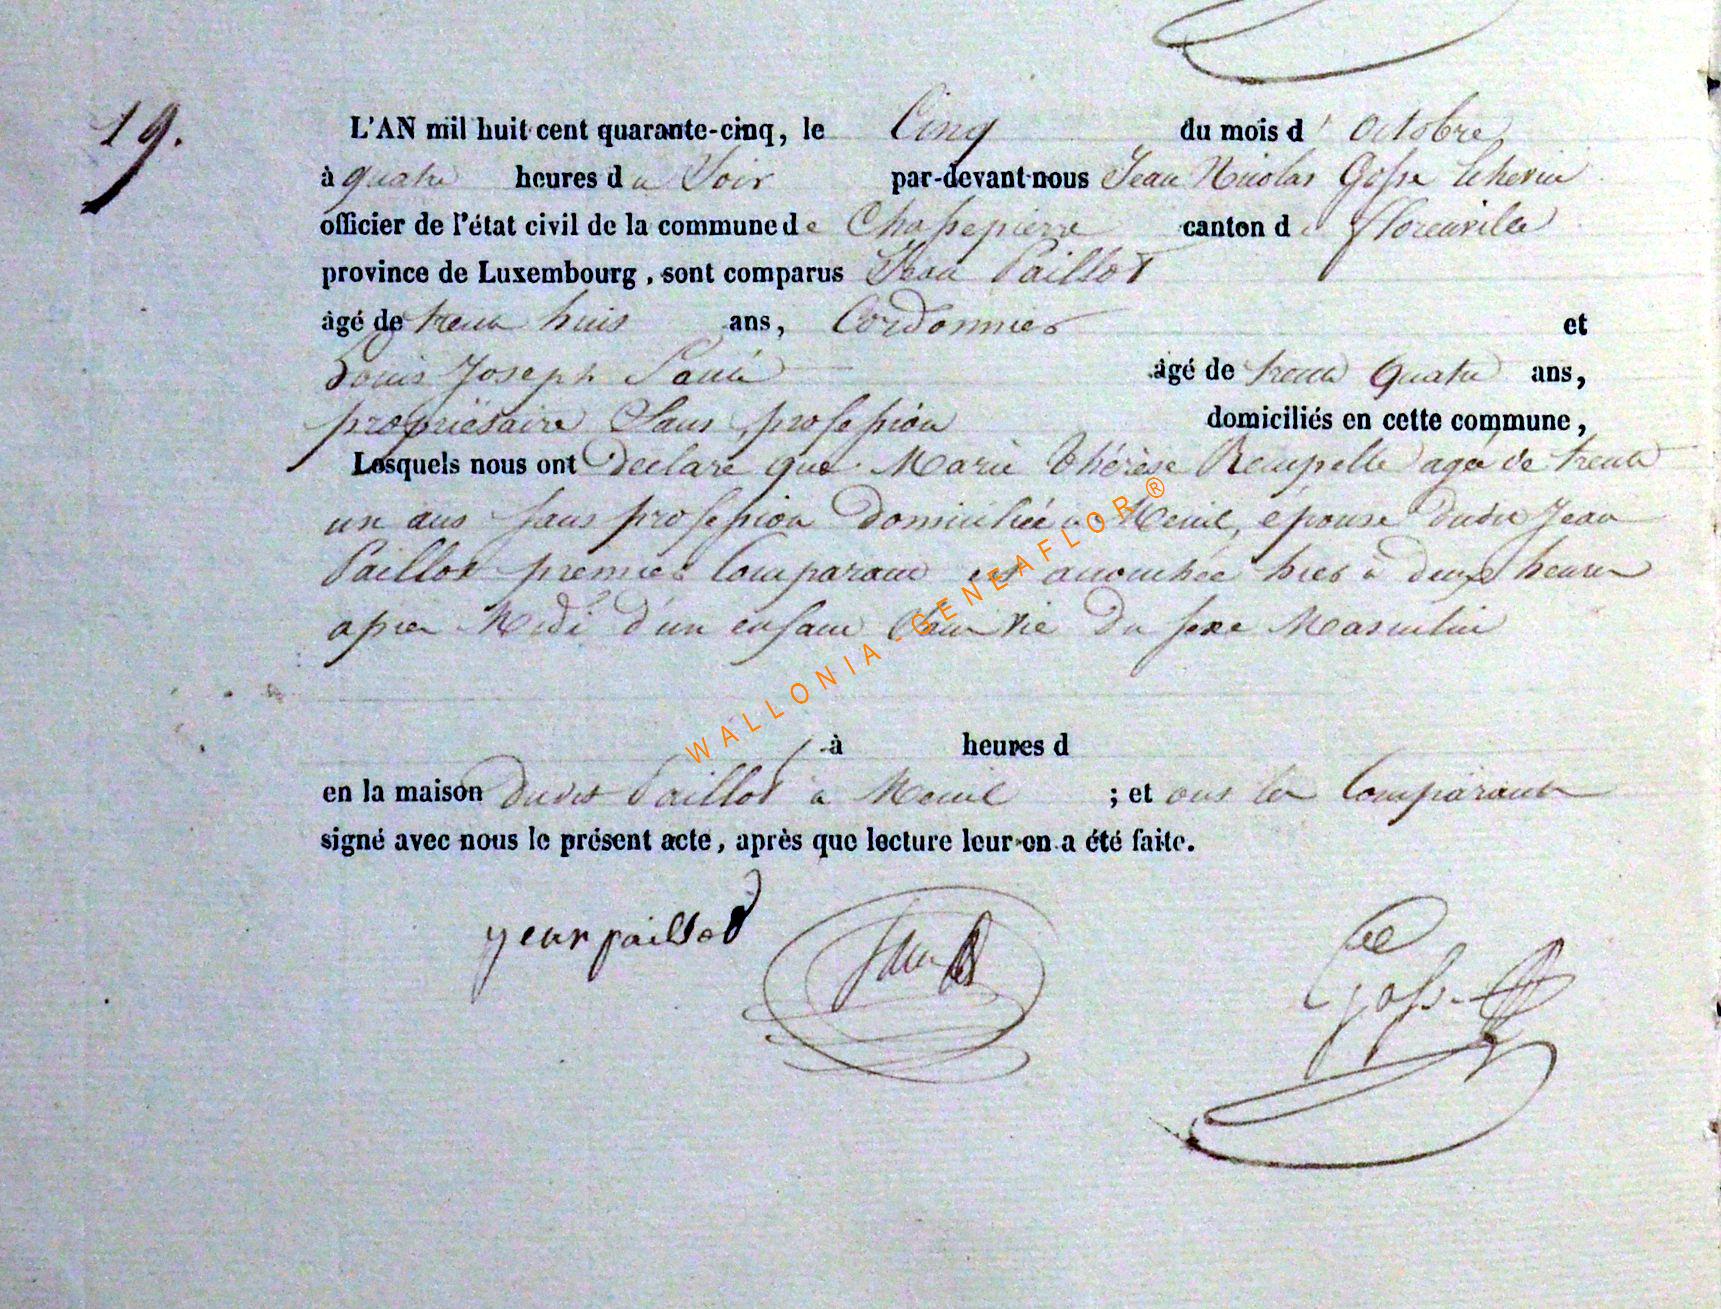 19.
L'AN mil huit cent quarante-cinq, le Cinq du mois d'octobre
à quatre heures du Soir par-devant nous Jean Nicolas Gosse Echevin
officier de l'état civil de la commune de Chassepierre canton de florenville
province de Luxembourg, sont comparus Jean Paillot
âgé de trente huit ans, Cordonnier et
Louis Joseph âgé de trente quatre ans,
propriétaire Sans profession domiciliés en cette commune,
Lesquels nous ont déclaré que Marie thérèse agée de trente
un ans sans profession domiciliée à Menil, épouse dudit Jean
Paillot premier Comparant est accouchée hier à deux heures
après Midi d'un enfant Sans vie du sexe Masculin
à heures d
en la maison dudit Paillot à Menil ; et ont les Comparants
signé avec nous le présent acte, après que lecture leur en a été faite.
jean paillot
Gosse
WALLONIA - GENEAFLOR ®